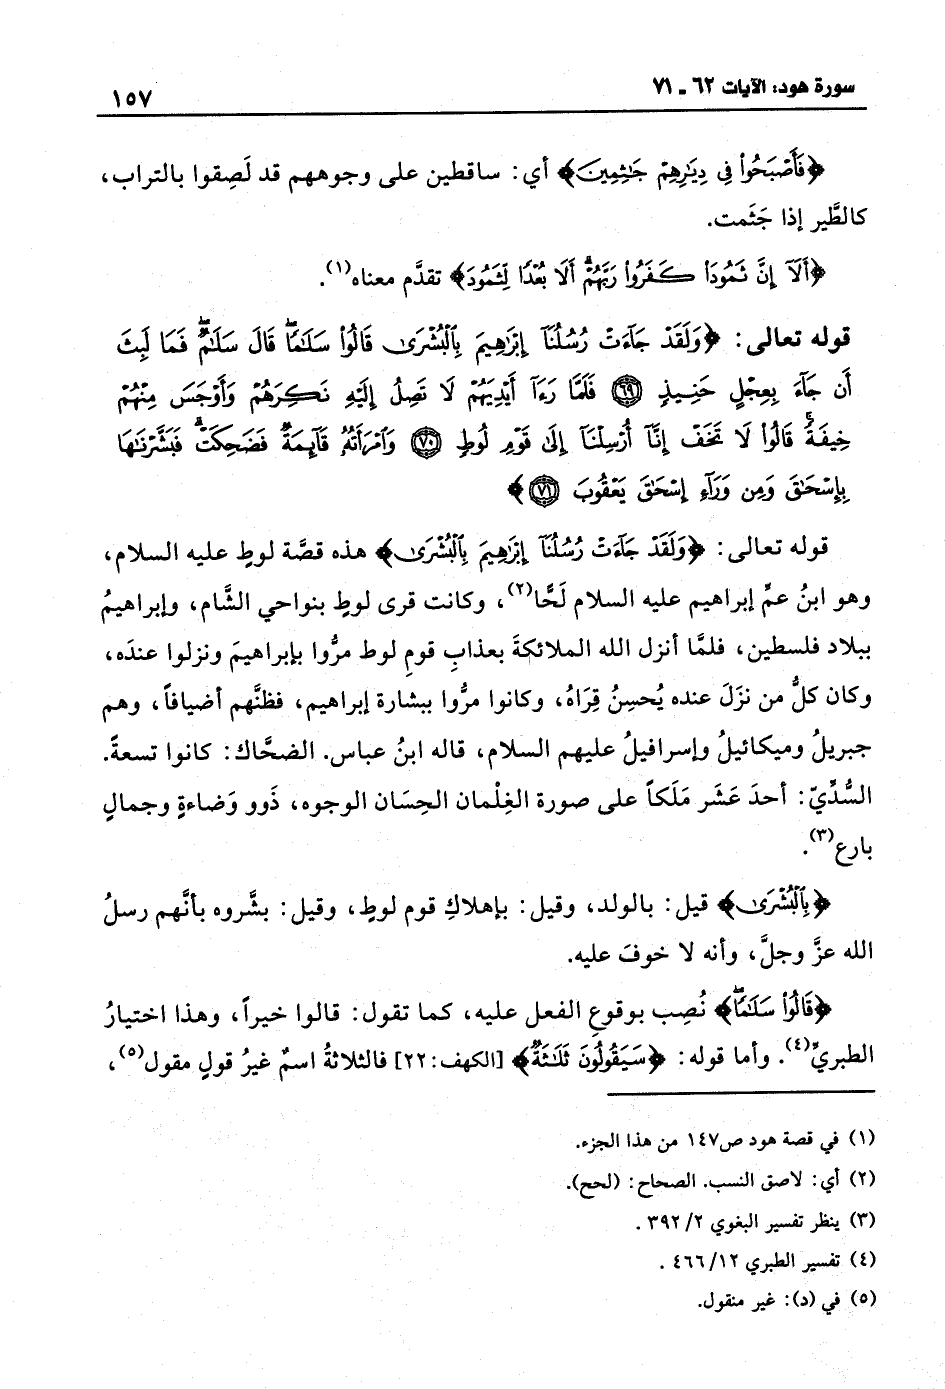 سورة هود: الآيات ٦٢ ـ ٧١
١٥٧
﴿فَأَصْبَحُوا۟ فِى دِيَـٰرِهِمْ جَـٰثِمِينَ﴾ أي: ساقطين على وجوههم قد لَصِقوا بالتراب،
كالطَّير إذا جَثَمت.
﴿أَلَآ إِنَّ ثَمُودَا۟ كَفَرُوا۟ رَبَّهُمْ ۗ أَلَا بُعْدًا لِّثَمُودَ﴾ تقدَّم معناه(١).
قوله تعالى: ﴿وَلَقَدْ جَآءَتْ رُسُلُنَآ إِبْرَٰهِيمَ بِٱلْبُشْرَىٰ قَالُوا۟ سَلَـٰمًا ۖ قَالَ سَلَـٰمٌ ۖ فَمَا لَبِثَ
أَن جَآءَ بِعِجْلٍ حَنِيذٍ ٦٩ فَلَمَّا رَءَآ أَيْدِيَهُمْ لَا تَصِلُ إِلَيْهِ نَكِرَهُمْ وَأَوْجَسَ مِنْهُمْ
خِيفَةً ۚ قَالُوا۟ لَا تَخَفْ إِنَّآ أُرْسِلْنَآ إِلَىٰ قَوْمِ لُوطٍ ٧٠ وَٱمْرَأَتُهُۥ قَآئِمَةٌ فَضَحِكَتْ فَبَشَّرْنَـٰهَا
بِإِسْحَـٰقَ وَمِن وَرَآءِ إِسْحَـٰقَ يَعْقُوبَ ٧١﴾
قوله تعالى: ﴿وَلَقَدْ جَآءَتْ رُسُلُنَآ إِبْرَٰهِيمَ بِٱلْبُشْرَىٰ﴾ هذه قصَّة لوطٍ عليه السلام،
وهو ابنُ عمِّ إبراهيم عليه السلام لَحًّا(٢)، وكانت قرى لوطٍ بنواحي الشَّام، وإبراهيمُ
ببلاد فلسطين، فلمَّا أنزل الله الملائكةَ بعذابِ قومِ لوط مرُّوا بإبراهيمَ ونزلوا عنده،
وكان كلُّ من نزَلَ عنده يُحسِنُ قِرَاهُ، وكانوا مرُّوا ببشارة إبراهيم، فظنَّهم أضيافاً، وهم
جبريلُ وميكائيلُ وإسرافيلُ عليهم السلام، قاله ابنُ عباس. الضحَّاك: كانوا تسعةً.
السُّدِّيّ: أحدَ عَشَر مَلَكاً على صورة الغِلْمان الحِسَان الوجوه، ذَوو وَضاءةٍ وجمالٍ
بارع(٣).
﴿بِٱلْبُشْرَىٰ﴾ قيل: بالولد، وقيل: بإهلاكِ قوم لوطٍ، وقيل: بشَّروه بأنَّهم رسلُ
الله عزَّ وجلَّ، وأنه لا خوفَ عليه.
﴿قَالُوا۟ سَلَـٰمًا ۖ﴾ نُصِب بوقوعِ الفعل عليه، كما تقول: قالوا خيراً، وهذا اختيارُ
الطبريِّ(٤). وأما قوله: ﴿سَيَقُولُونَ ثَلَـٰثَةٌ﴾ [الكهف:٢٢] فالثلاثةُ اسمٌ غيرُ قولٍ مقول(٥)،
(١) في قصة هود ص١٤٧ من هذا الجزء.
(٢) أي: لاصق النسب. الصحاح: (لحح).
(٣) ينظر تفسير البغوي ٢/ ٣٩٢ .
(٤) تفسير الطبري ١٢/ ٤٦٦ .
(٥) في (د): غير منقول.